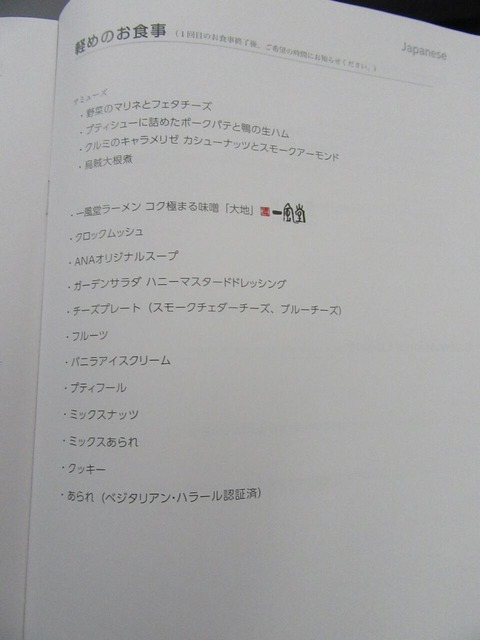 Japanese
軽めのお食事 (1回目のお食事終了後、ご希望の時間にお知らせください。)
アミューズ
・野菜のマリネとフェタチーズ
・プティシューに詰めたポークパテと鴨の生ハム
・クルミのキャラメリゼ カシューナッツとスモークアーモンド
・烏賊大根煮
・一風堂ラーメン コク極まる味噌「大地」 一風堂
・クロックムッシュ
・ANAオリジナルスープ
・ガーデンサラダ ハニーマスタードドレッシング
・チーズプレート (スモークチェダーチーズ、ブルーチーズ)
・フルーツ
・バニラアイスクリーム
・プティフール
・ミックスナッツ
・ミックスあられ
・クッキー
・あられ (ベジタリアン・ハラール認証済)